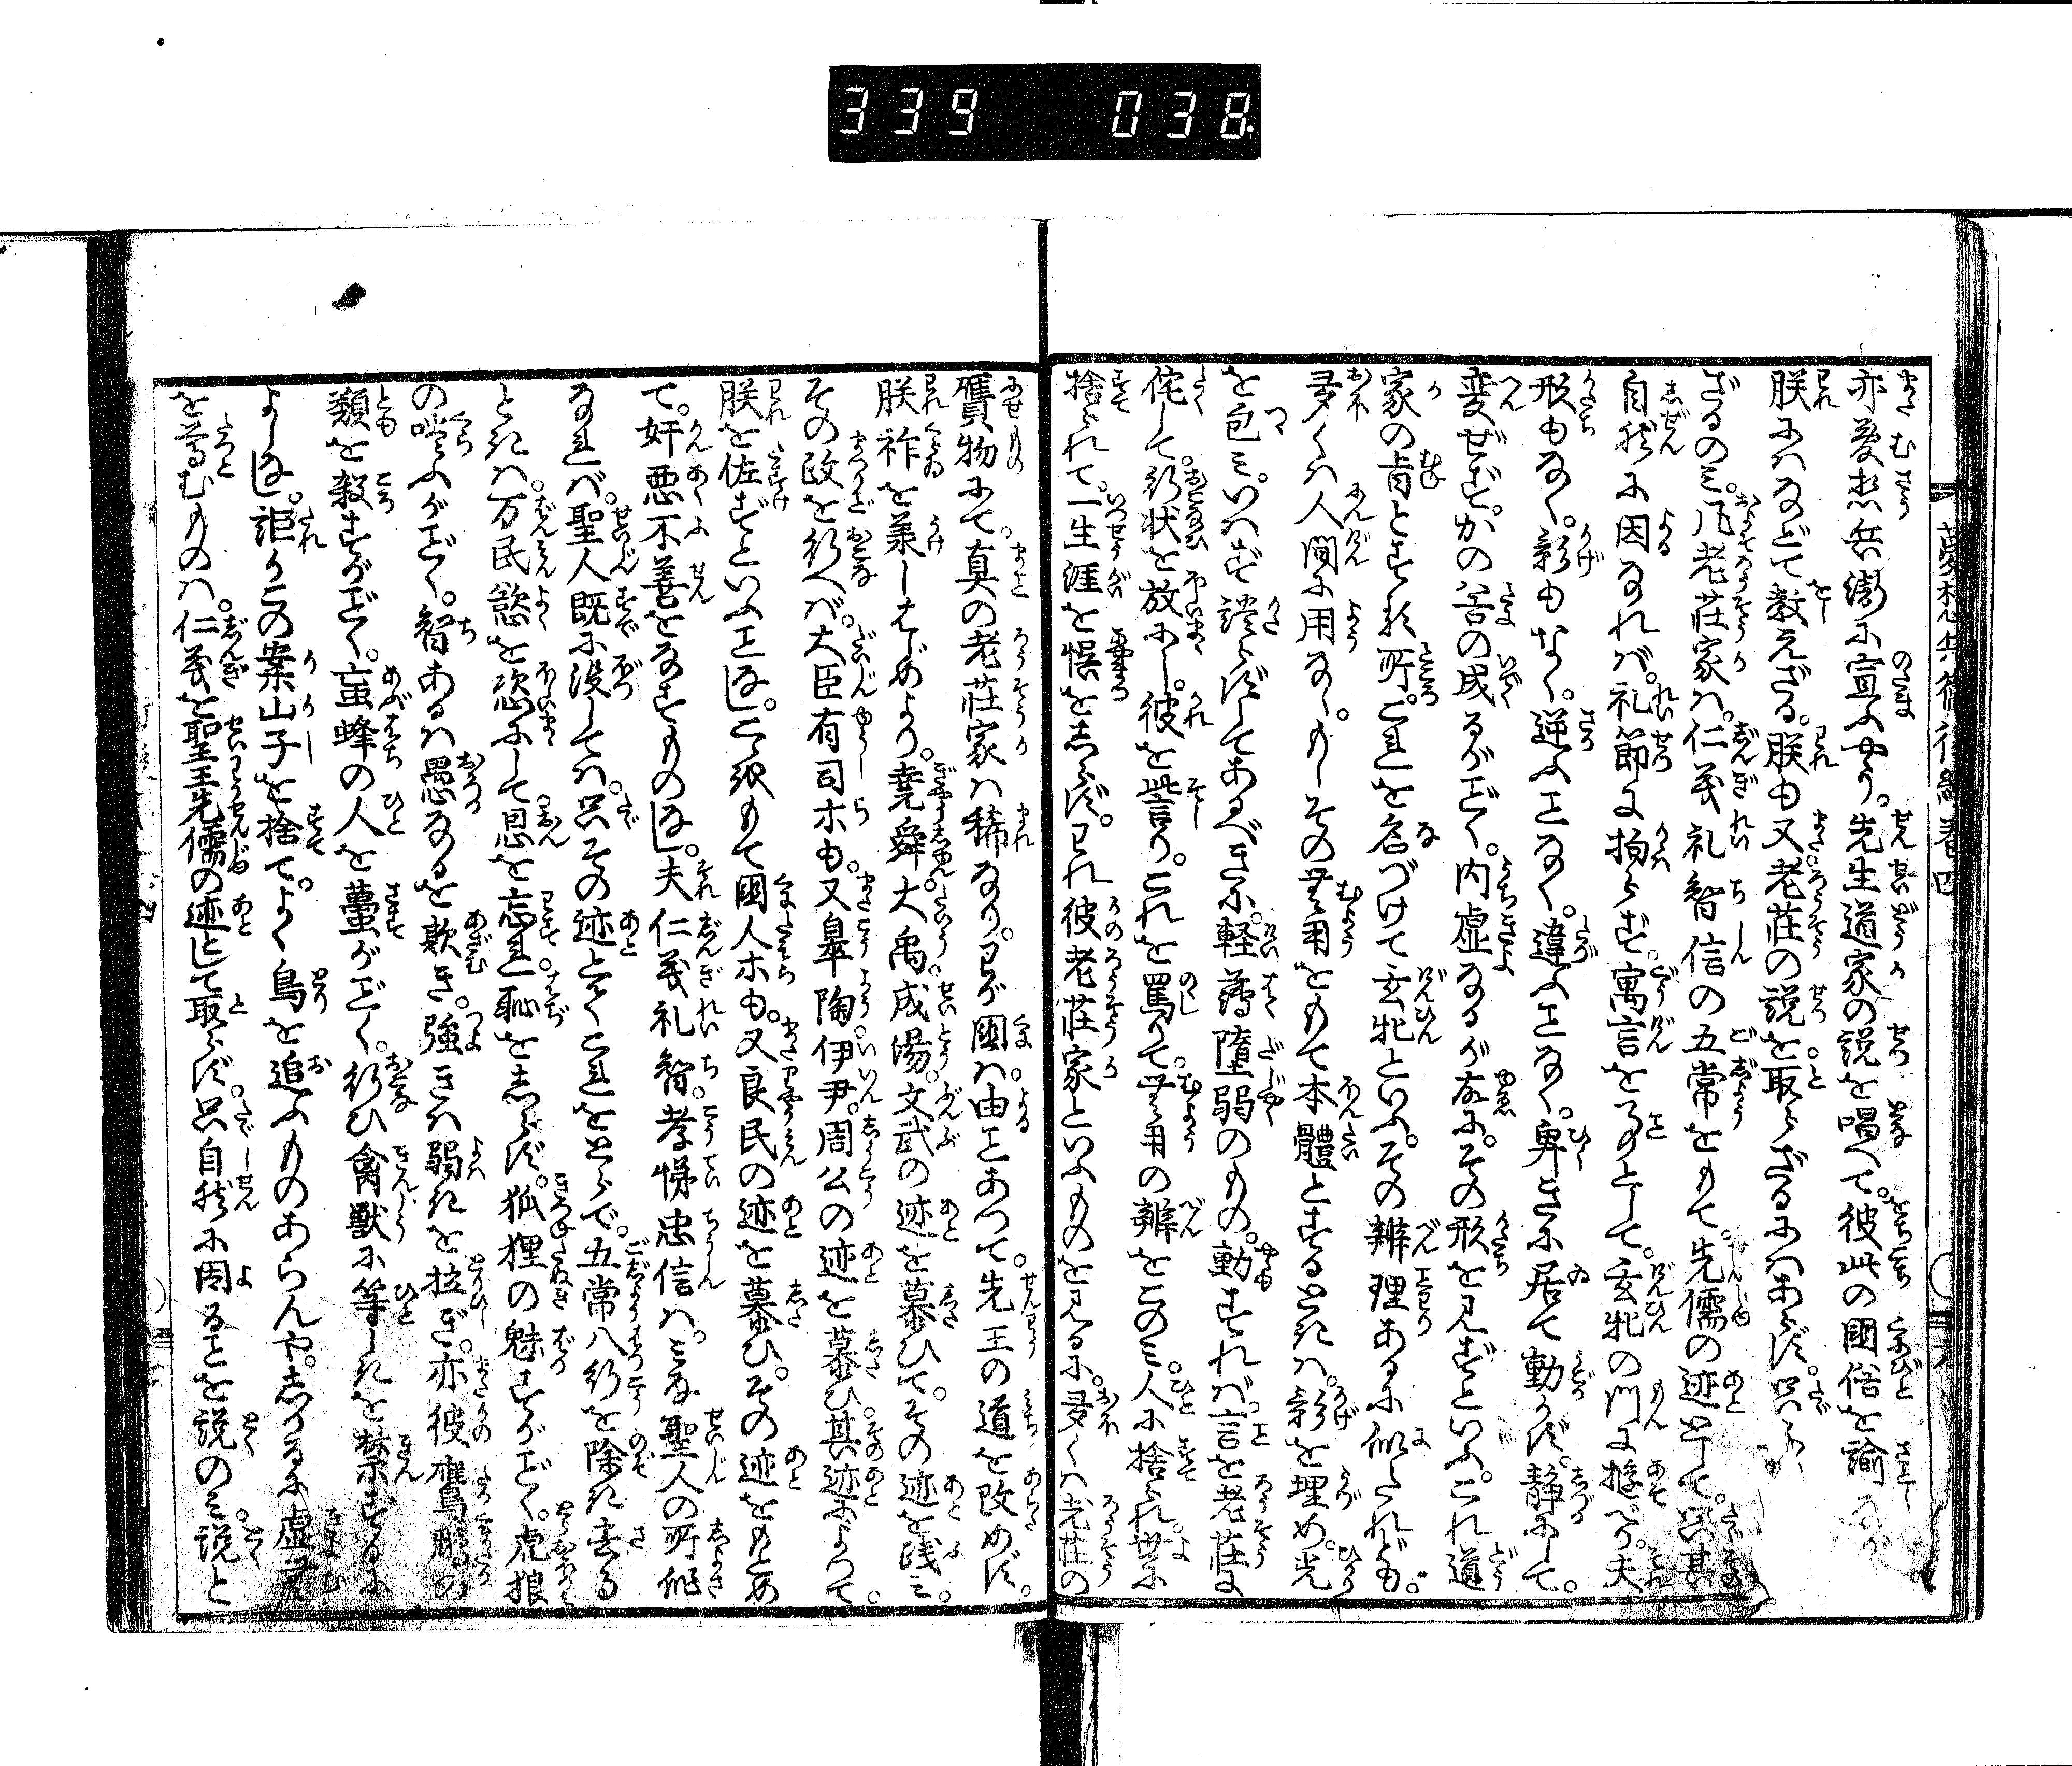 339 038
夢想兵衛後編巻四
亦夢想兵衛に宣ふやう。先生道家の説を唱へて。彼此の國俗を諭
朕にはなどて教えざる。朕も又老荘の説を取らざるにはあらず。只
ざるのミ。凡老荘家は。仁義礼智信の五常をもて。先儒の迹として。只其
自然に因なれば。礼節に拘らず。寓言をのとして。玄牝の門に遊べり。夫
形もなく。影もなく。逆ふことなく。違ふことなく。卑きに居て動かず。静にして。
変ぜず。かの谷の成るがごとく。内虚なるが故に。その形を見ずといふ。これ道
家の旨とする所。これを名づけて玄牝といふ。その辨理あるに似たれども。
多くは人間に用なし。もしその無用をもて本體とするときは。影を埋め。光
を包ミ。いはず語らずしてあるべきに。軽薄隋弱のもの。動すれば。言を老荘に
侘して。行状を放にし。彼を訾り。これを罵て。無用の辨をこのミ。人に捨られ。世に
捨られて。一生涯を悞をしらず。われ彼老荘家といふものを見るに。多くは老荘の
贋物にて。真の老荘家は稀なり。わが國は。由ことあつて。先王の道を改めず。
朕祚を承しはじめより。堯舜。大禹。成湯。文武の迹を慕ひて。その迹を践ミ。
その政を行へば。大臣有司ホも。又皐陶伊尹。周公の迹を慕ひ。其迹によつて。
朕を佐ずといふことなし。こゝをもて國人ホも。又良民の迹を慕ひ。その迹をもとめ
て。奸悪不善をなすものなし。夫仁義礼智。孝悌忠信は。ミな聖人の所作
なれば。聖人既に没しては。只その迹とてこれをとらで。五常八行を除き去る
ときは。万民慾を恣にして恩を忘れ。恥をしらず。狐狸の魅すがごとく。虎狼
の噬ふがごとく。智あるは愚なるを欺き。強きは弱きを拉ぎ。亦彼鷹鳥鵰の
類を殺すがごとく。虻蜂の人を蠆がごとく。行ひ禽獣に等しきを禁ずるに
よしなし。詎かこの案山子を捨て。よく鳥を追ふものあらんや。しかるに虚無
を尊むものは。仁義を聖王先儒の迹として取らず。只自然に因ることを説のミ。説と